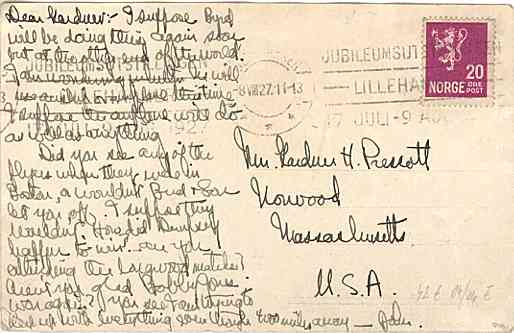 Dear Gardner:- I suppose Byrd
will be doing this again soon
but at the other end of the world.
I am wondering he will
I suppose the will do
as well as everything
Did you see any of the
flyers when they were in
Boston, or wouldn't Bird & Son
let you off. I suppose they
wouldn't. How did Dempsey
happen to win. are you
attending the Longwood matches?
Aren't you glad Bobby Jones
won again? You see I am trying to
keep up with everything even though miles away — John.
JUBILEUMSUTST
LILLEHA
17 JULI-9 AU
8 VIII 27. 11-13
1927
20
NORGE
ØRE
POST
Mr. Gardner H. Prescott
Norwood
Massachusetts
U.S.A.